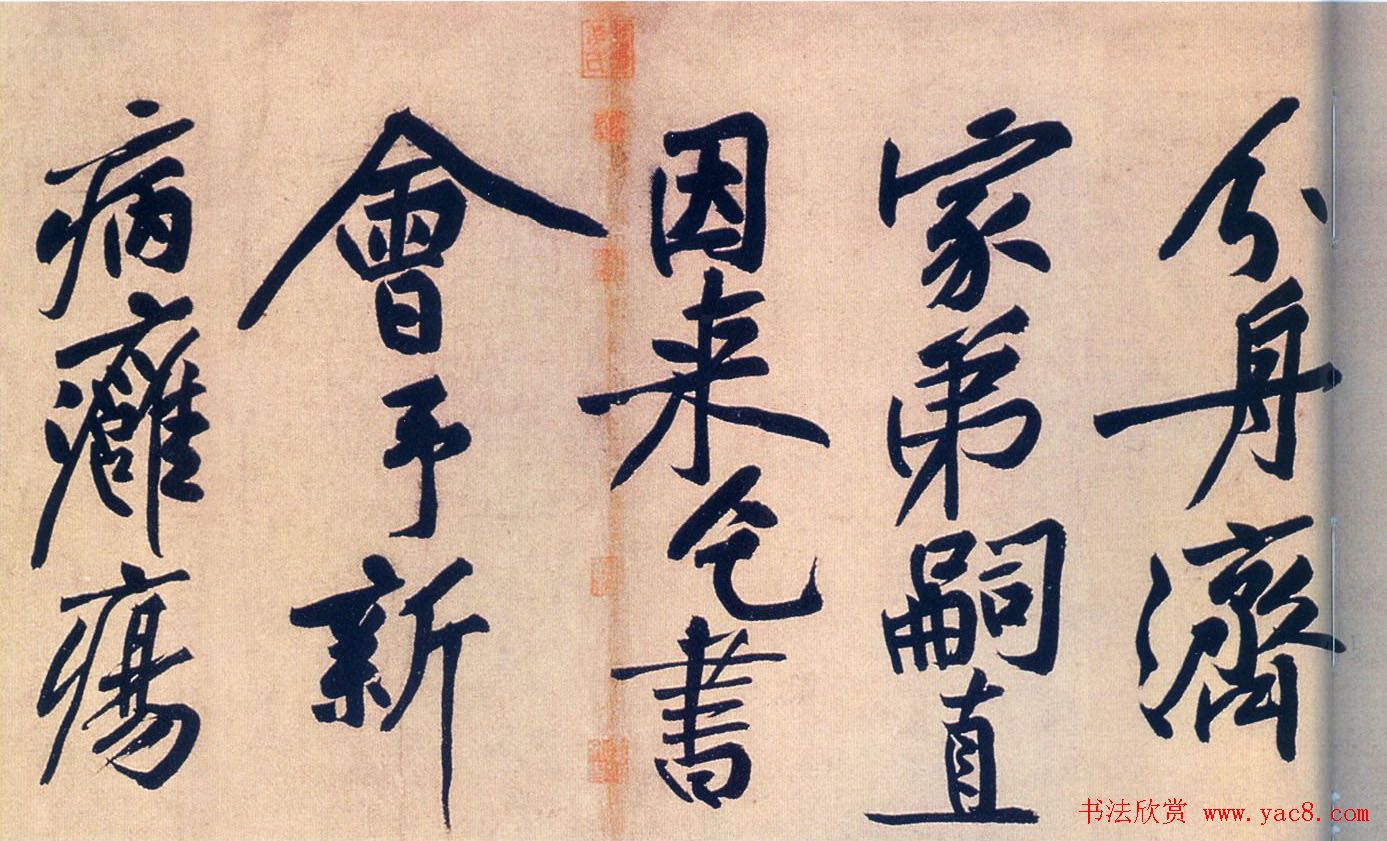 分身濟
家弟嗣直
因来乞書
會予新
病癰瘍
书法欣赏 www.yac8.com